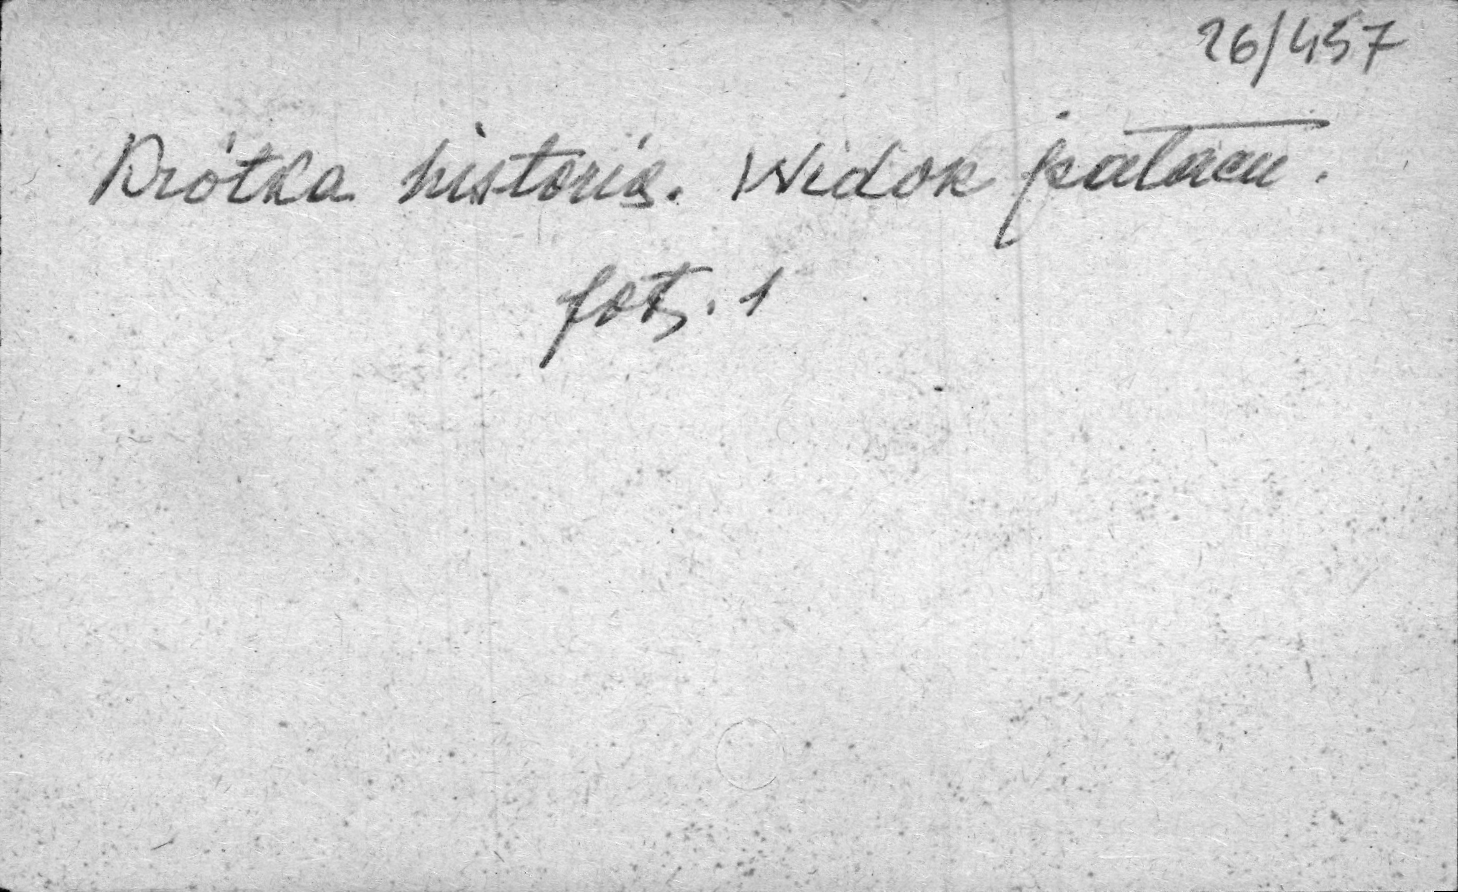 26/457
Krótka historia. Widok pałacu.
fot. 1